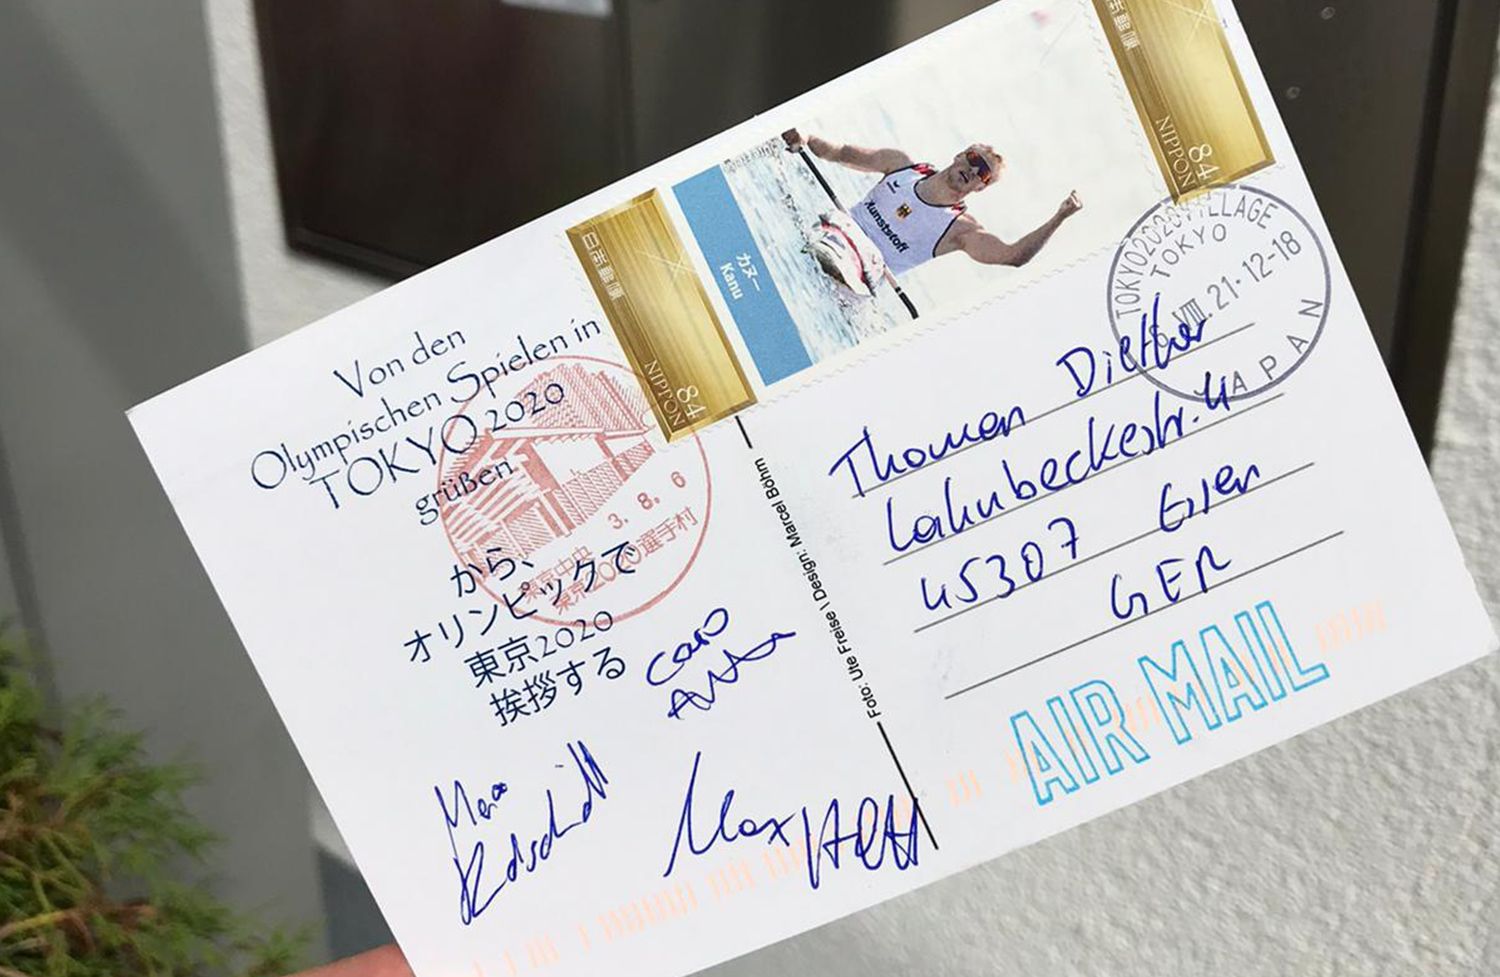 Von den
Olympischen Spielen in
TOKYO 2020
grüßen
から、
オリンピックで
東京2020
挨拶する
3. 8. 6
東京中央
東京2020選手村
日本郵便
NIPPON 84
カヌー
Kanu
Kunststoff
日本郵便
NIPPON 84
TOKYO2020 VILLAGE
TOKYO
VIII. 21. 12-18
JAPAN
Foto: Ute Freise \ Design: Marcel Böhm
Thomas Diether
45307 Essen
GER
AIR MAIL
Caro
Max